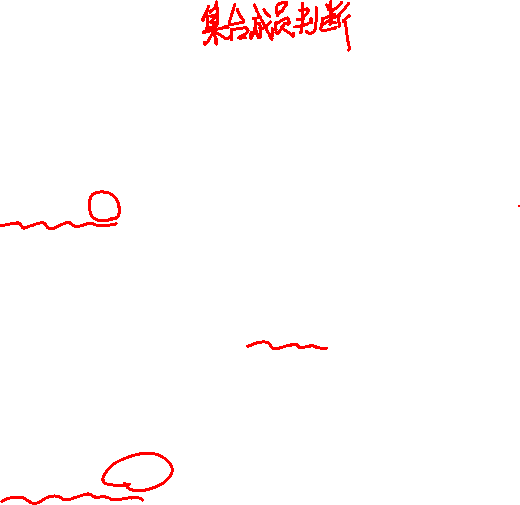 集合成员判断